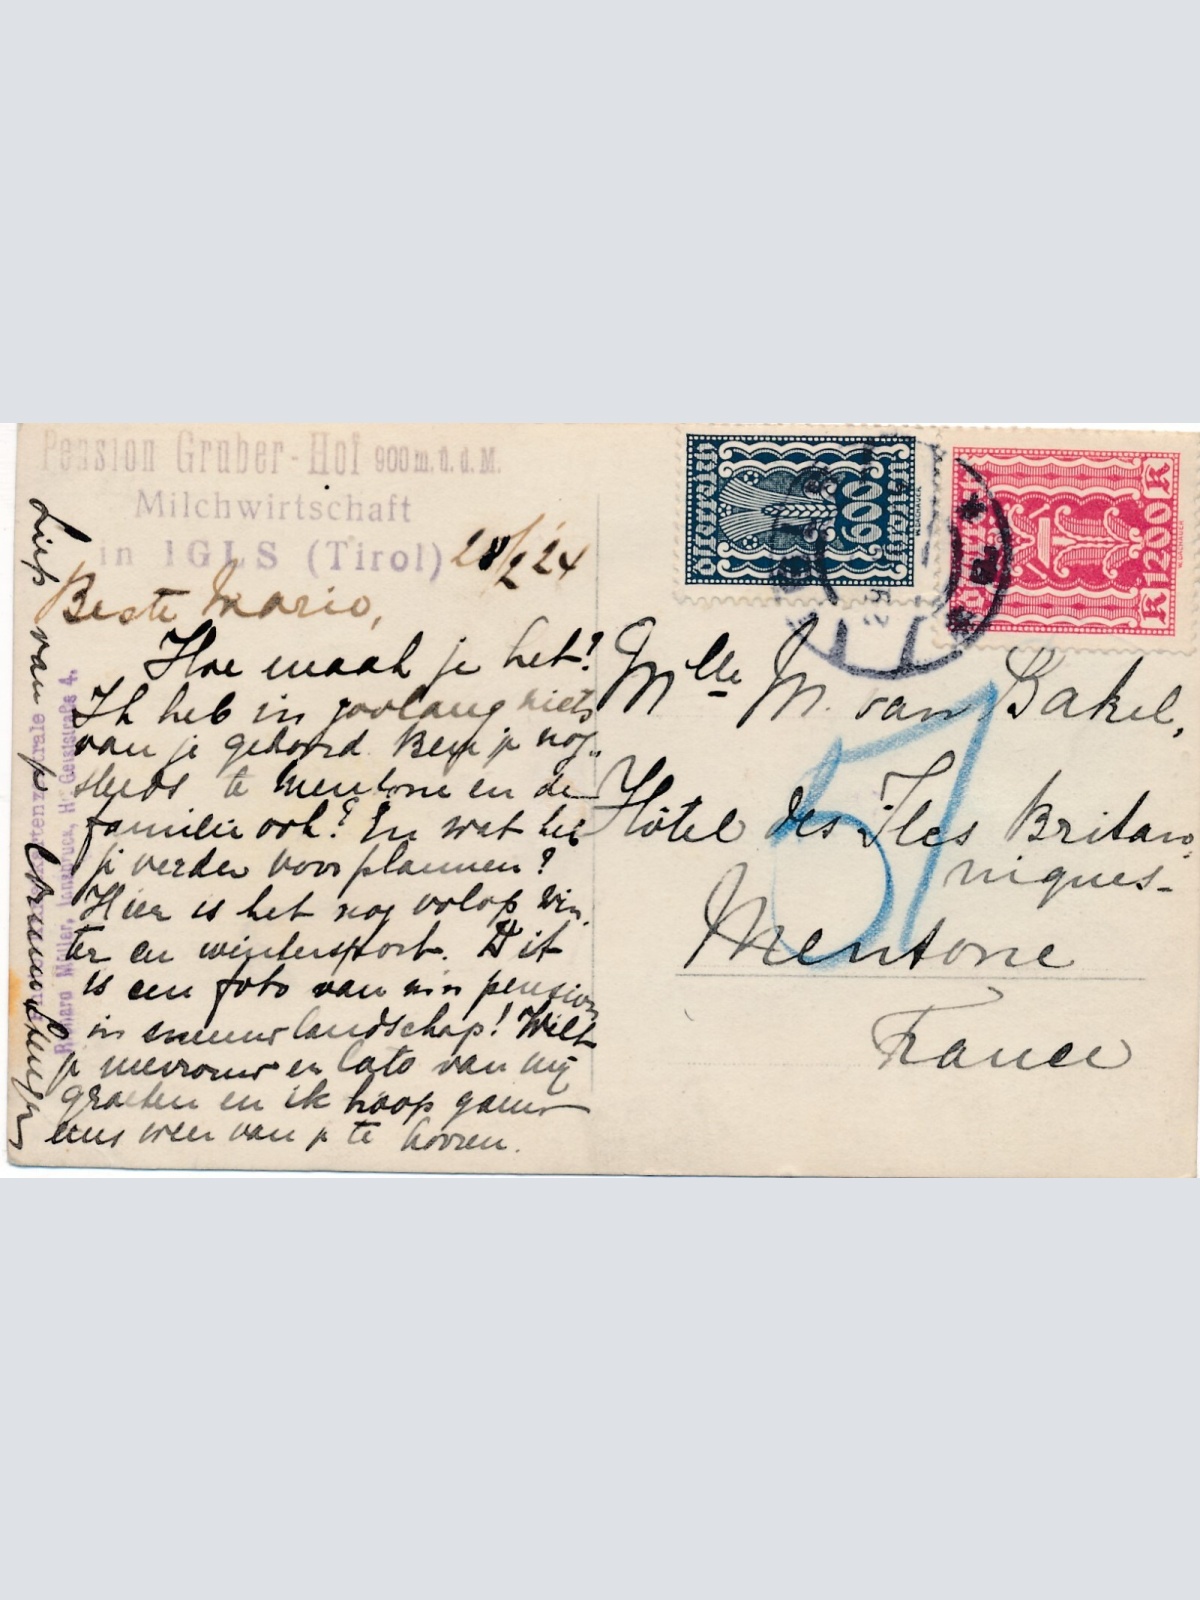 Pension Gruber-Hof 900 m. ü. d. M.
Milchwirtschaft
in IGLS (Tirol)
28/2 '24
Beste Mario,
Hoe maak je het?
Ik heb in zoolang niets
van je gehoord. Ben je nog
steeds te Mentone en de
familie ook? En wat heb
je verder voor plannen?
Hier is het nog volop win-
ter en wintersport. Dit
is een foto van mijn pension
in sneeuwlandschap! Wilt
je mevrouw en Cato van mij
groeten en ik hoop gauw
eens weer van je te hooren.
Liefs van
Richard Müller, Innsbruck, H. Geiststraße 4.
Österreich
600
Österreich
K 1200 K
Mlle M. van Bakel,
Hôtel des Iles Britan-
niques-
Mentone
France
57